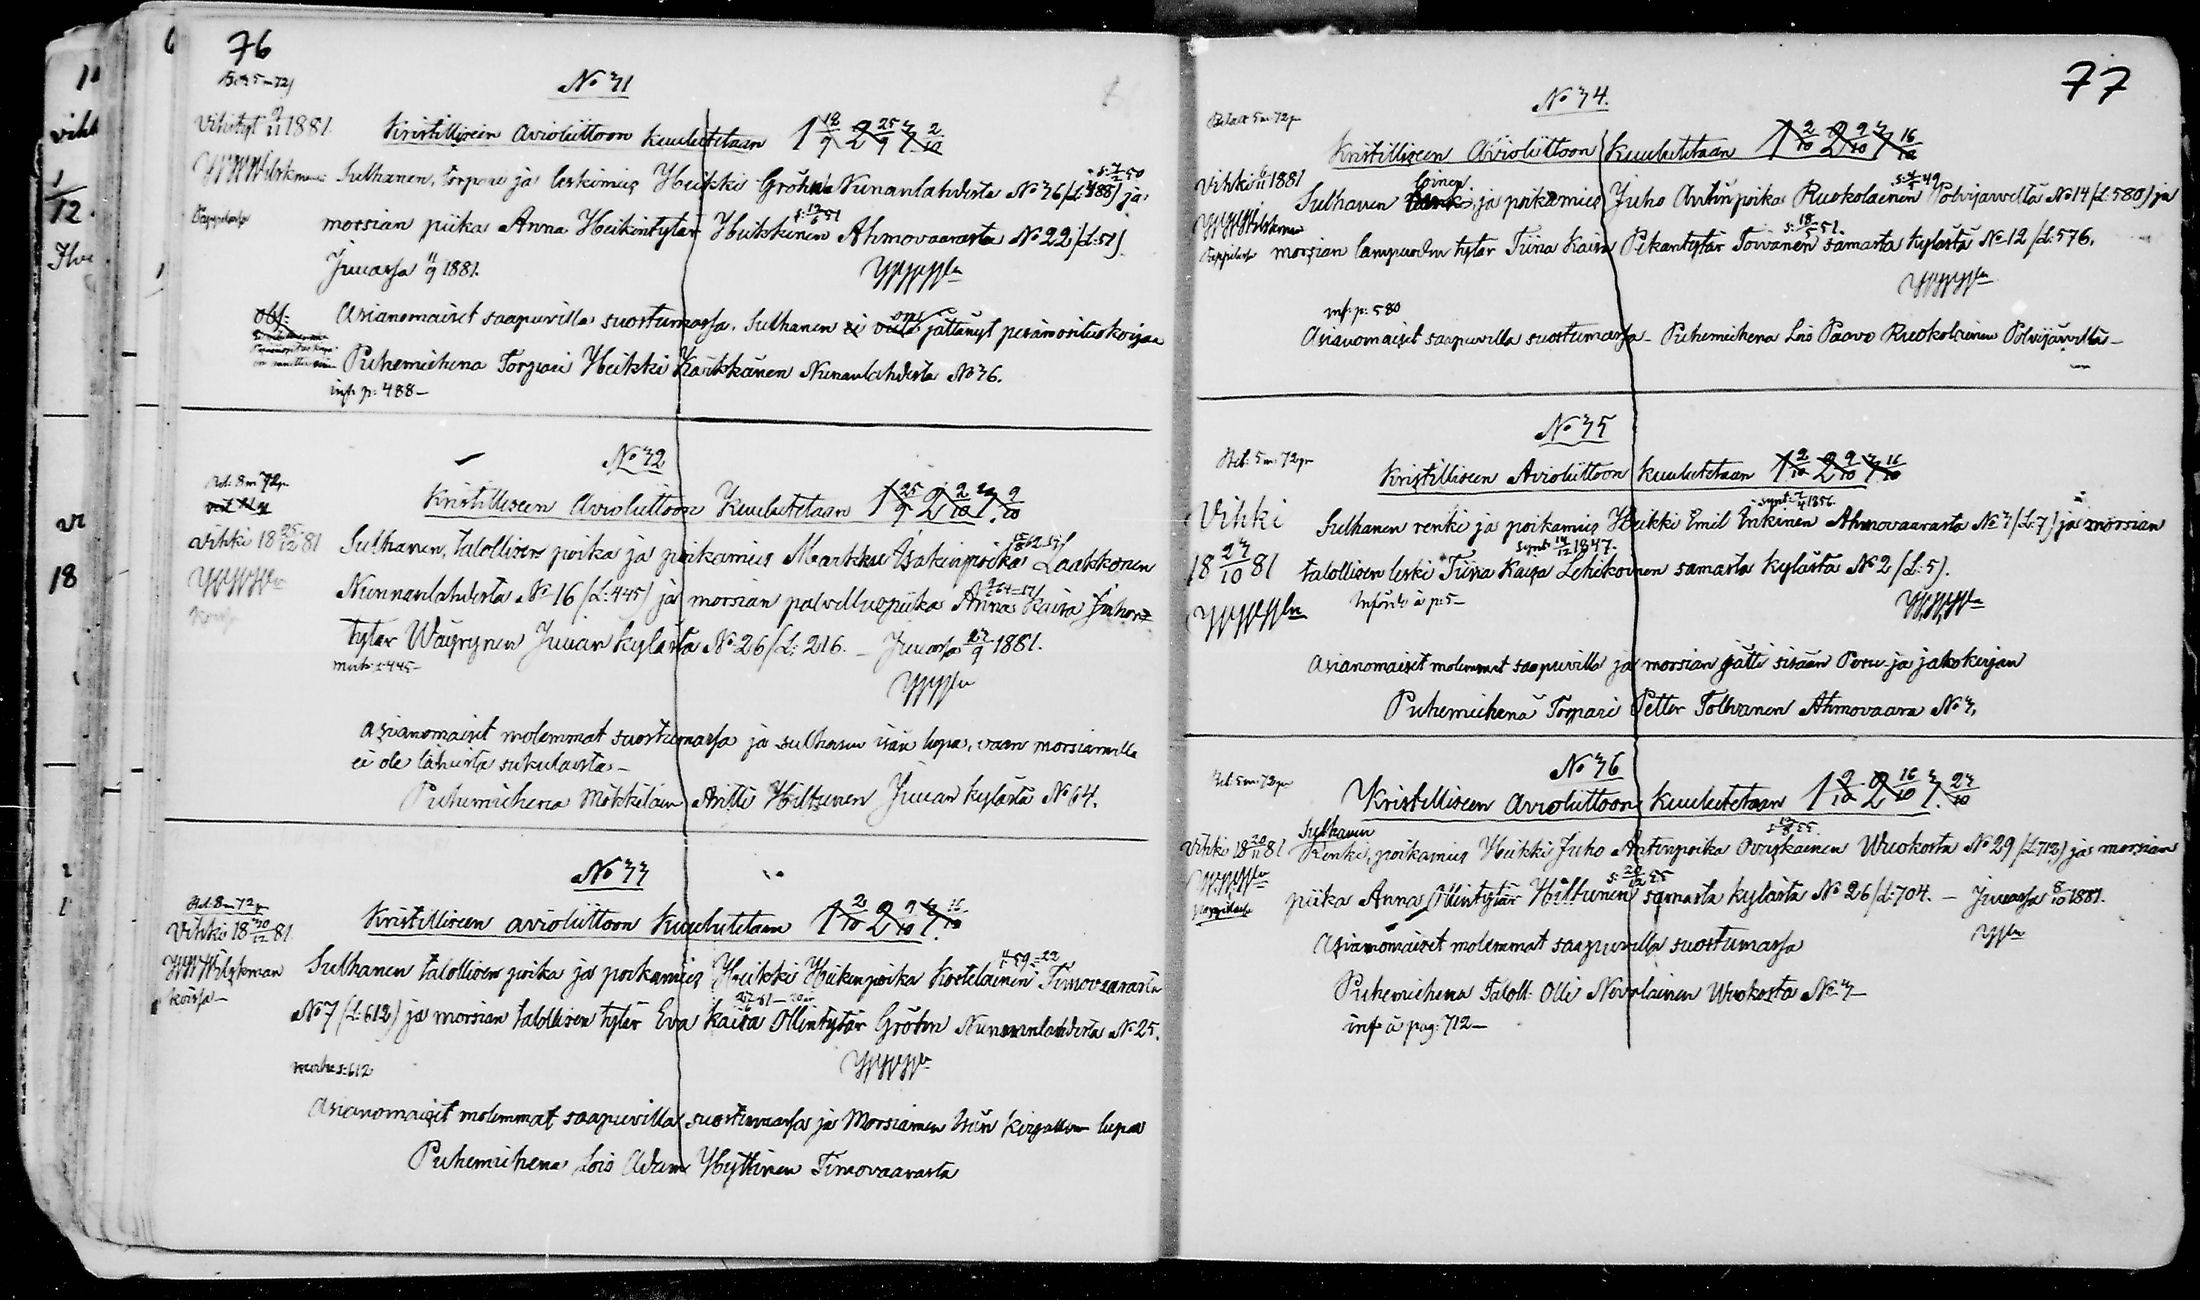 76
No 31
Vihityt 9/11 1881.
Kristilliseen Avioliittoon kuulutetaan 1 18/9 2 25/9 3 2/10
Sulhanen, torpari ja leskimies Heikki Gröhn Nunanlahdesta No 36 (L: 488) ja
morsian piika Anna Heikintytär Heikkinen Ahmovaarasta No 22 (L: 51).
Juuassa 11/9 1881.
obs:
Asianomaiset saapuvilla suostumassa. Sulhanen ei vielä on jättänyt perämösituskirjaa
Puhemiehenä Torpari Heikki Karkkanen Nunanlahdesta No 36.
inf. p: 488—
No 32
Bet. 8 m 72 p
Kristilliseen Avioliittoon Kuulutetaan 1 25/9 2 2/10 3 9/10
vihki 18 25/12 81
Sulhanen, talollisen poika ja poikamies Markku Isakinpoika Laakkonen
Nunnanlahdesta No 16 (L: 445) ja morsian palvelluspiika Anna Kaisa Juhon-
tytär Wäyrynen Juuan kylästä No 26 (L: 216. — Juuassa 23/9 1881.
muh: s: 445—
asianomaiset molemmat suostumassa ja sulhasen isän lupa, vaan morsiamella
ei ole läheistä sukulaista—
Puhemiehenä Mökkeläin Antti Hiltunen Juuan kylästä No 64.
No 33
Bet. 8 m 72 p
Vihki 18 30/12 81
Kristilliseen avioliittoon kuulutetaan 1 2/10 2 9/10 3 16/10
Sulhanen talollisen poika ja poikamies Heikki Heikinpoika Kostelainen Timovaarasta
No 7 (L: 612) ja morsian talollisen tytär Eva Kaisa Ollintytär Gröhn Nunnanlahdesta No 25.
s: 612
Asianomaiset molemmat saapuvilla suostumassa ja Morsiamen Isän kirjallinen lupa
Puhemiehenä Lois Adam Hyttinen Timovaarasta
77
No 34.
Kristilliseen Avioliittoon Kuulutetaan 1 2/10 2 9/10 3 16/10
Vihki 6/11 1881
Sulhanen loinen ja poikamies Juho Antinpoika Ruokolainen Polvijärveltä No 14 (L: 580) ja
s: 18/5 51.
morsian lampuodin tytär Tiina Kaisa Pekantytär Toivanen samasta kylästä No 12 (L: 576.
inf: p: 580
Asianomaiset saapuvilla suostumassa— Puhemiehenä Lois Paavo Ruokolainen Polvijärveltä—
No 35
Bet: 5 m 72 p
Kristilliseen Avioliittoon kuulutetaan 1 2/10 2 9/10 3 16/10
Vihki
18 23/10 81
Sulhanen renki ja poikamies Heikki Emil Eriksinen Ahmovaarasta No 3 (L: 7) ja morsian
synt 14/12 1847.
talollisen leski Tiina Kaisa Lehikoinen samasta kylästä No 2 (L: 5).
p: 5—
Asianomaiset molemmat saapuvilla ja morsian jätti sisään Peru- ja jakokirjan
Puhemiehenä Torpari Petter Tolvanen Ahmovaara No 3.
No 36
Bet. 5 m 72 p
Kristilliseen avioliittoon kuulutetaan 1 9/10 2 16/10 3 23/10
Vihki 18 20/11 81
Sulhanen
Renki, poikamies Heikki Juho Antinpoika Ovaskainen Wuokosta No 29 (L: 712) ja morsian
piika Anna Ollintytär Hiltunen samasta kylästä No 26 (L: 704. — Juuassa 8/10 1881.
Asianomaiset molemmat saapuvilla suostumassa
Puhemiehenä Taloll. Olli Nevalainen Wuokosta No 3—
inf: à pag: 712—